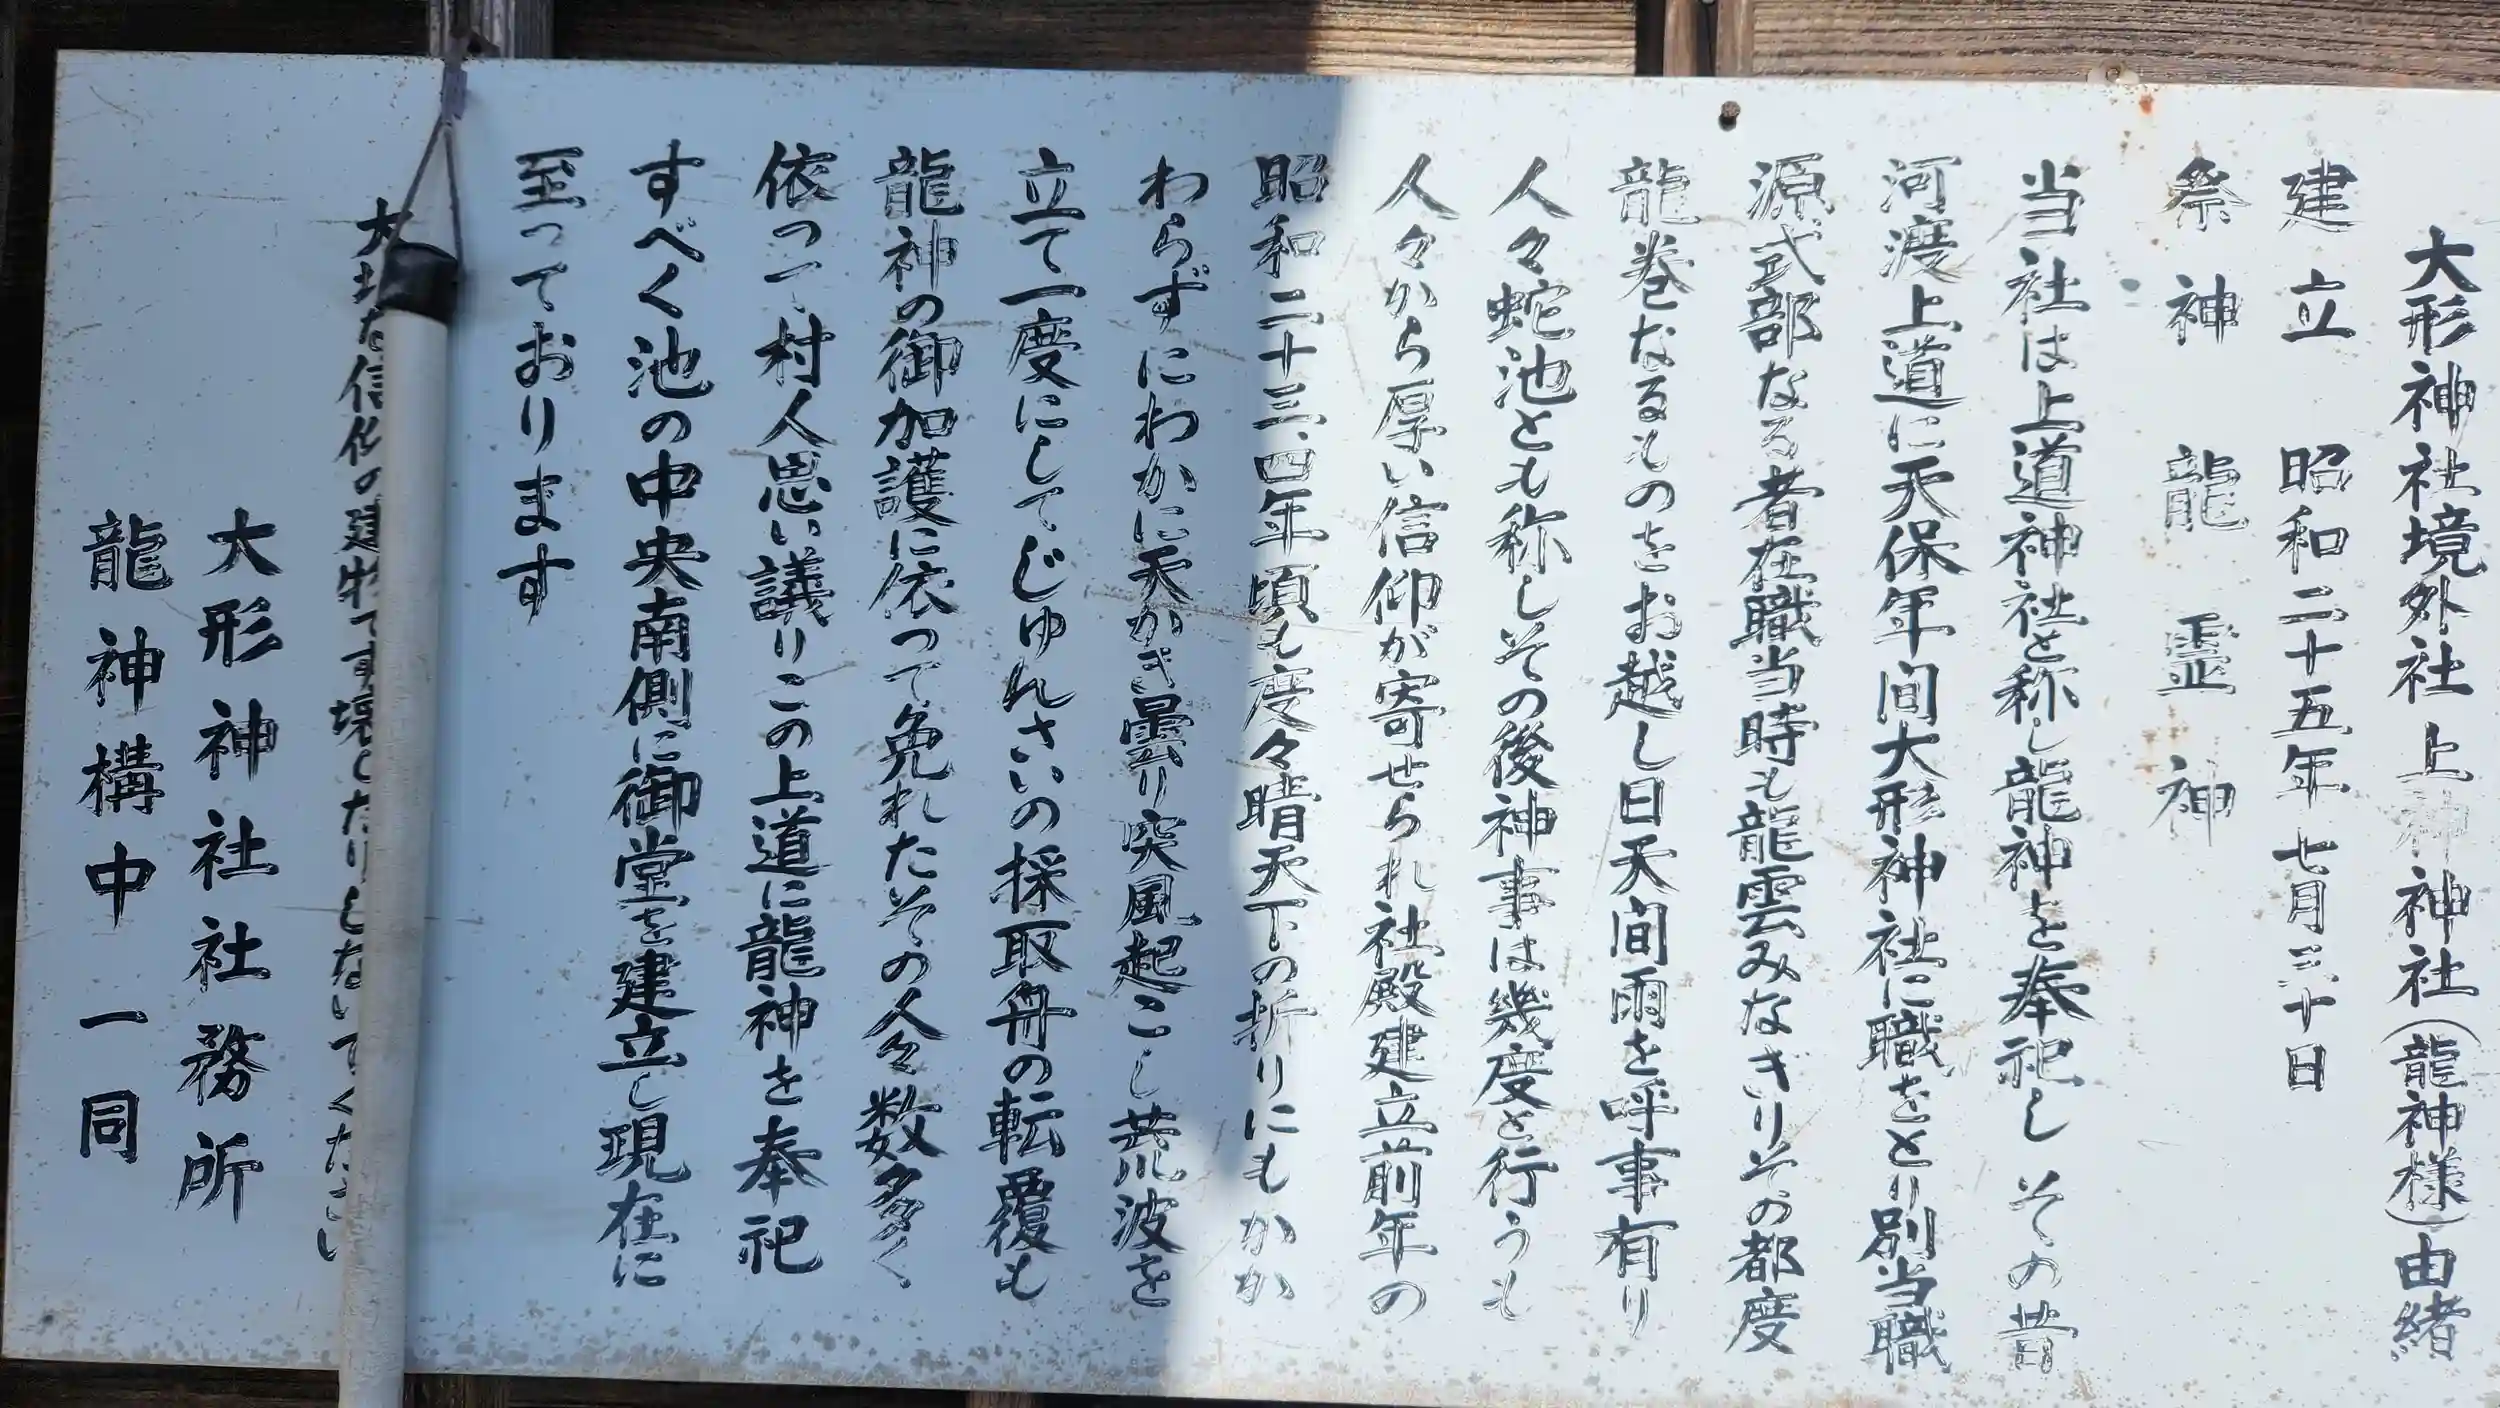 大形神社境外社 上神神社(龍神様)由緒
建立 昭和二十五年七月三十日
祭神 龍霊神
当社は上道神社と称し龍神を奉祀し その昔
河渡上道に天保年間大形神社に職をとり別当職
源式部なる者在職当時も龍雲みなぎりその都度
龍巻なるものをお越し日天間雨を呼事有り
人々蛇池とも称しその後神事は幾度と行うも
人々から厚い信仰が寄せられ社殿建立前年の
昭和二十三、四年頃も度々晴天下の折りにもかか
わらずにわかに天かき曇り突風起こし荒波を
立て一度にしてじゅんさいの採取舟の転覆も
龍神の御加護に依って免れたその人々数多く
依って、村人思い議りこの上道に龍神を奉祀
すべく池の中央南側に御堂を建立し現在に
至っております
大切な信仰の建物です壊したりしないでください
大形神社社務所
龍神構中一同